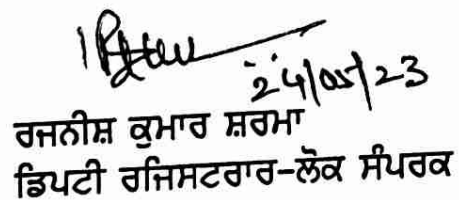 24/05/23
ਰਜਨੀਸ਼ ਕੁਮਾਰ ਸ਼ਰਮਾ
ਡਿਪਟੀ ਰਜਿਸਟਰਾਰ-ਲੋਕ ਸੰਪਰਕ